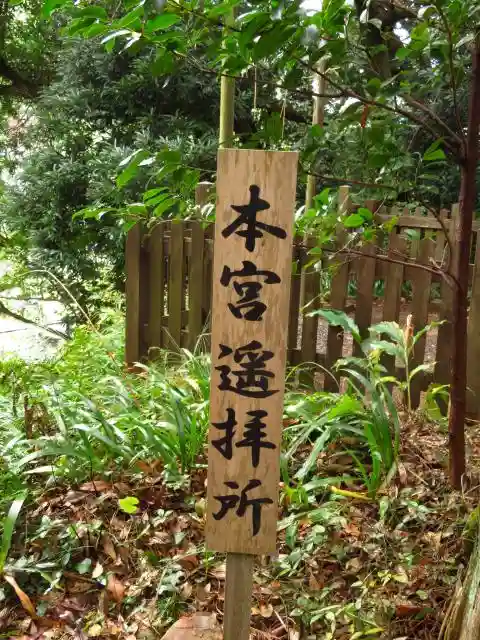 本宮遥拝所